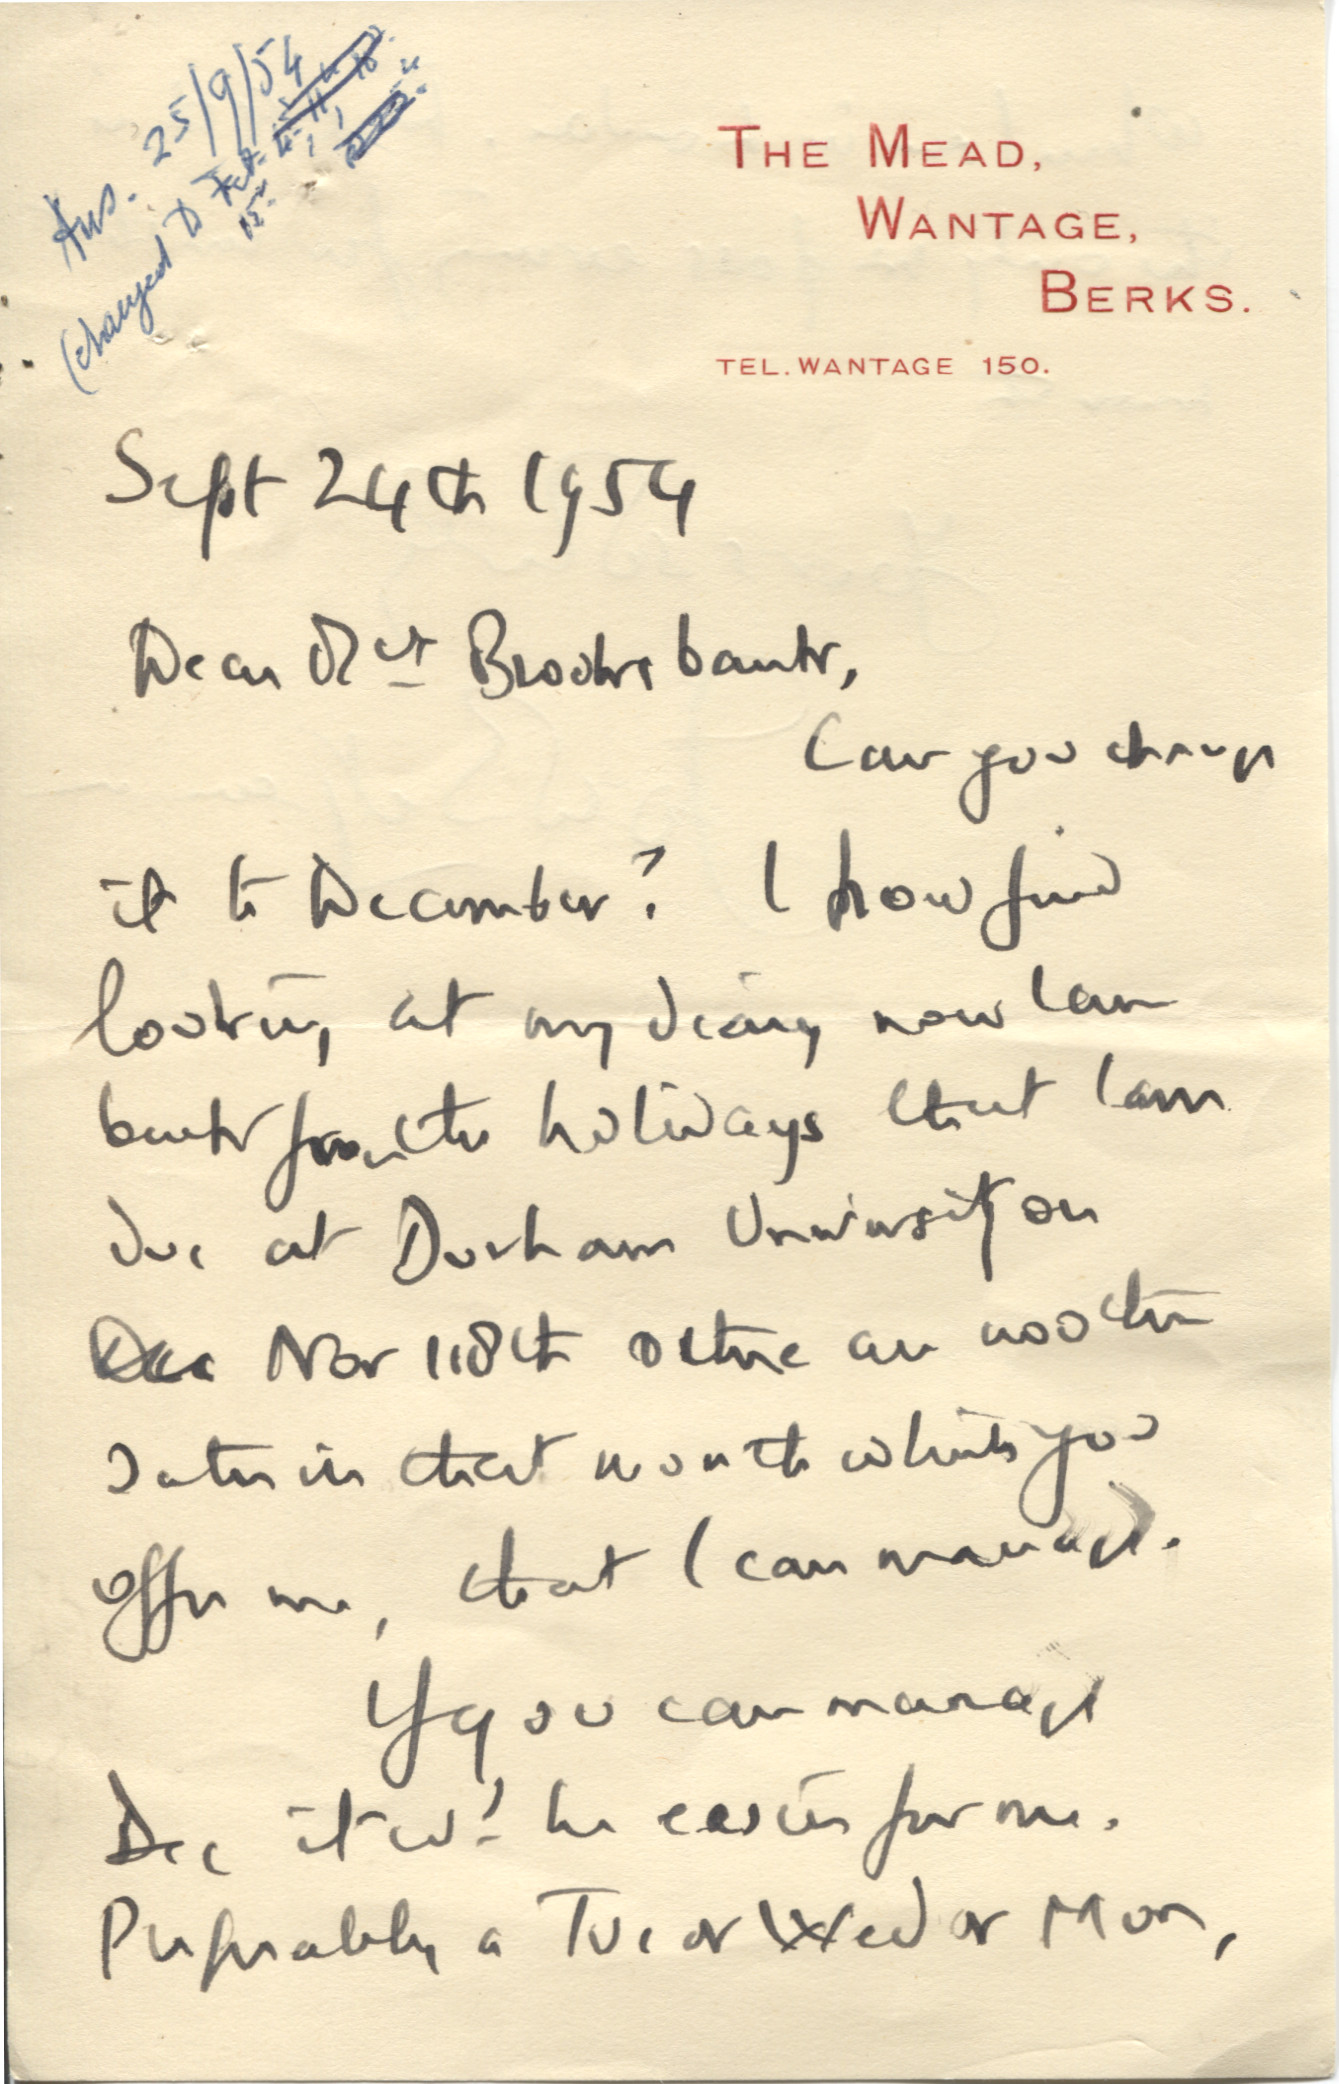 Ans. 25/9/54
(changed to Feb.
15
THE MEAD,
WANTAGE,
BERKS.
TEL. WANTAGE 150.
Sept 24th 1954
Dear Brooksbank,
Can you change
it to December? I now find
looking at my diary now I am
back from the holidays that I am
due at Durham University on
Dec Nov 18th so there are no other
dates in that month which you
offer me, that I can manage.
If you can manage
Dec it wd. be easier for me.
Preferably a Tue or Wed or Mon,